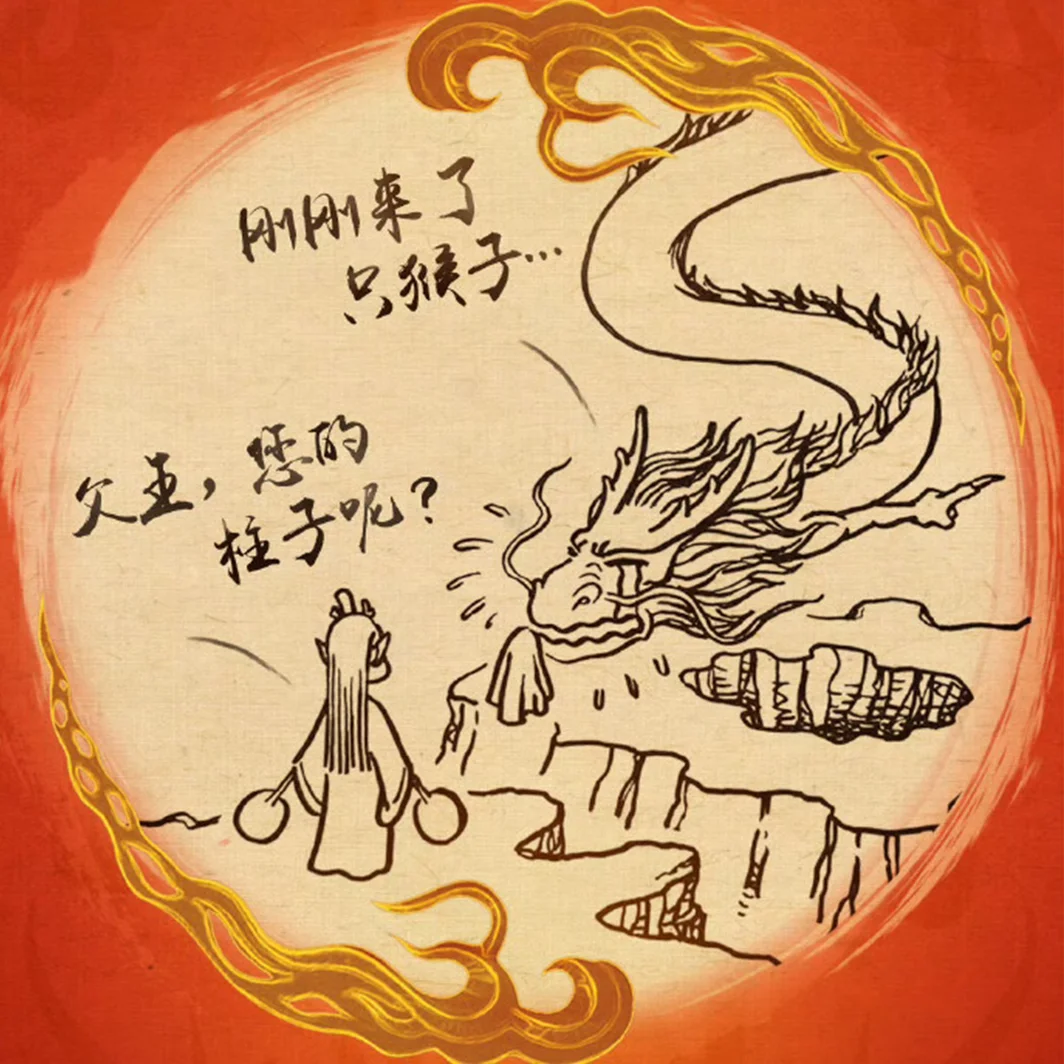 刚刚来了
只猴子...
父王，您的
柱子呢？